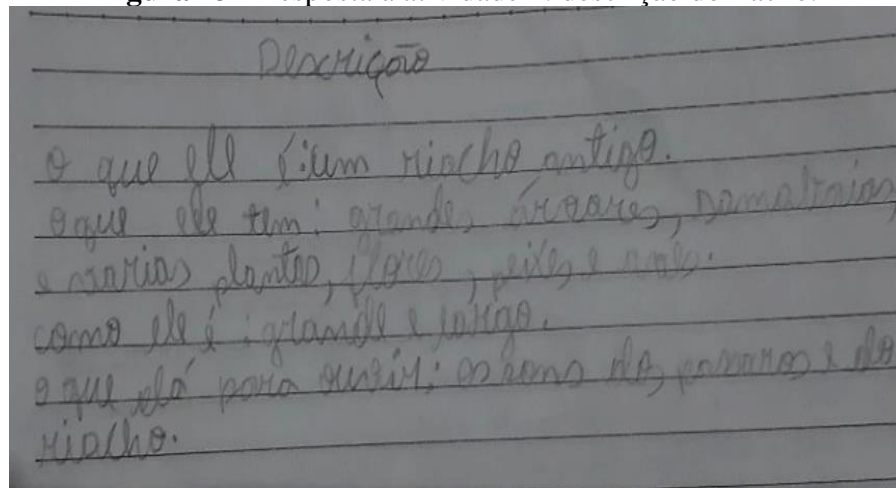 Descrição
o que ele é: um riacho antigo.
o que ele tem: grandes árvores, samabaias,
e varias plantas, flores, peixes e
como ele é: grande e largo.
o que dá para ouvir: os sons dos passaros e do
riacho.